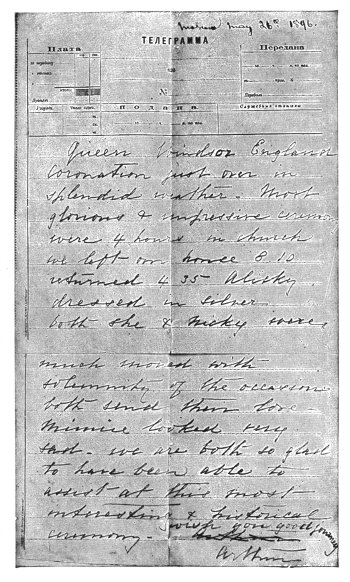 Moscow May 26th 1896.
ТЕЛЕГРАММА
Плата
Передана
№
ПОДАНА
Служебныя отметки
Queen Windsor England
Coronation just over in
splendid weather. Most
glorious & impressive ceremony
were 4 hours in church
we left our house 8.10
returned 4 35 Alicky
dressed in silver
both she & Nicky were
much moved with
solemnity of the occasion
both send their love
Minnie looked very
sad - we are both so glad
to have been able to
assist at this most
interesting & historical
ceremony. wish you good journey
Arthur